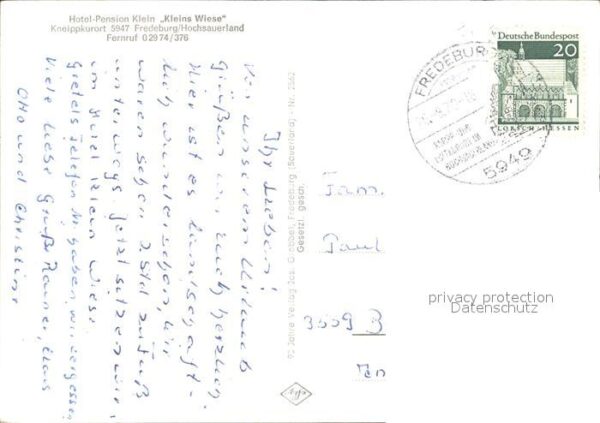 Hotel-Pension Klein „Kleins Wiese"
Kneippkurort 5947 Fredeburg/Hochsauerland
Fernruf 02974/376
Ihr Lieben!
Von unserem Urlaub
grüßen wir euch herzlich.
Hier ist es landschaft-
lich wunderschön, wir
waren schon 2 Std zu Fuß
unterwegs. Jetzt sitzen wir
im Hotel Klein Wiese.
Gretels Telefon Nr. haben wir vergessen
Viele liebe Grüße Klaus
Otto und Christine
90 Jahre Verlag Jos. Grobbel, Fredeburg (Sauerland) Nr. 2562
Gesetzl. gesch.
Fam.
Paul
3509 B
FREDEBURG
5949
Deutsche Bundespost
20
LORSCH · HESSEN
privacy protection
Datenschutz